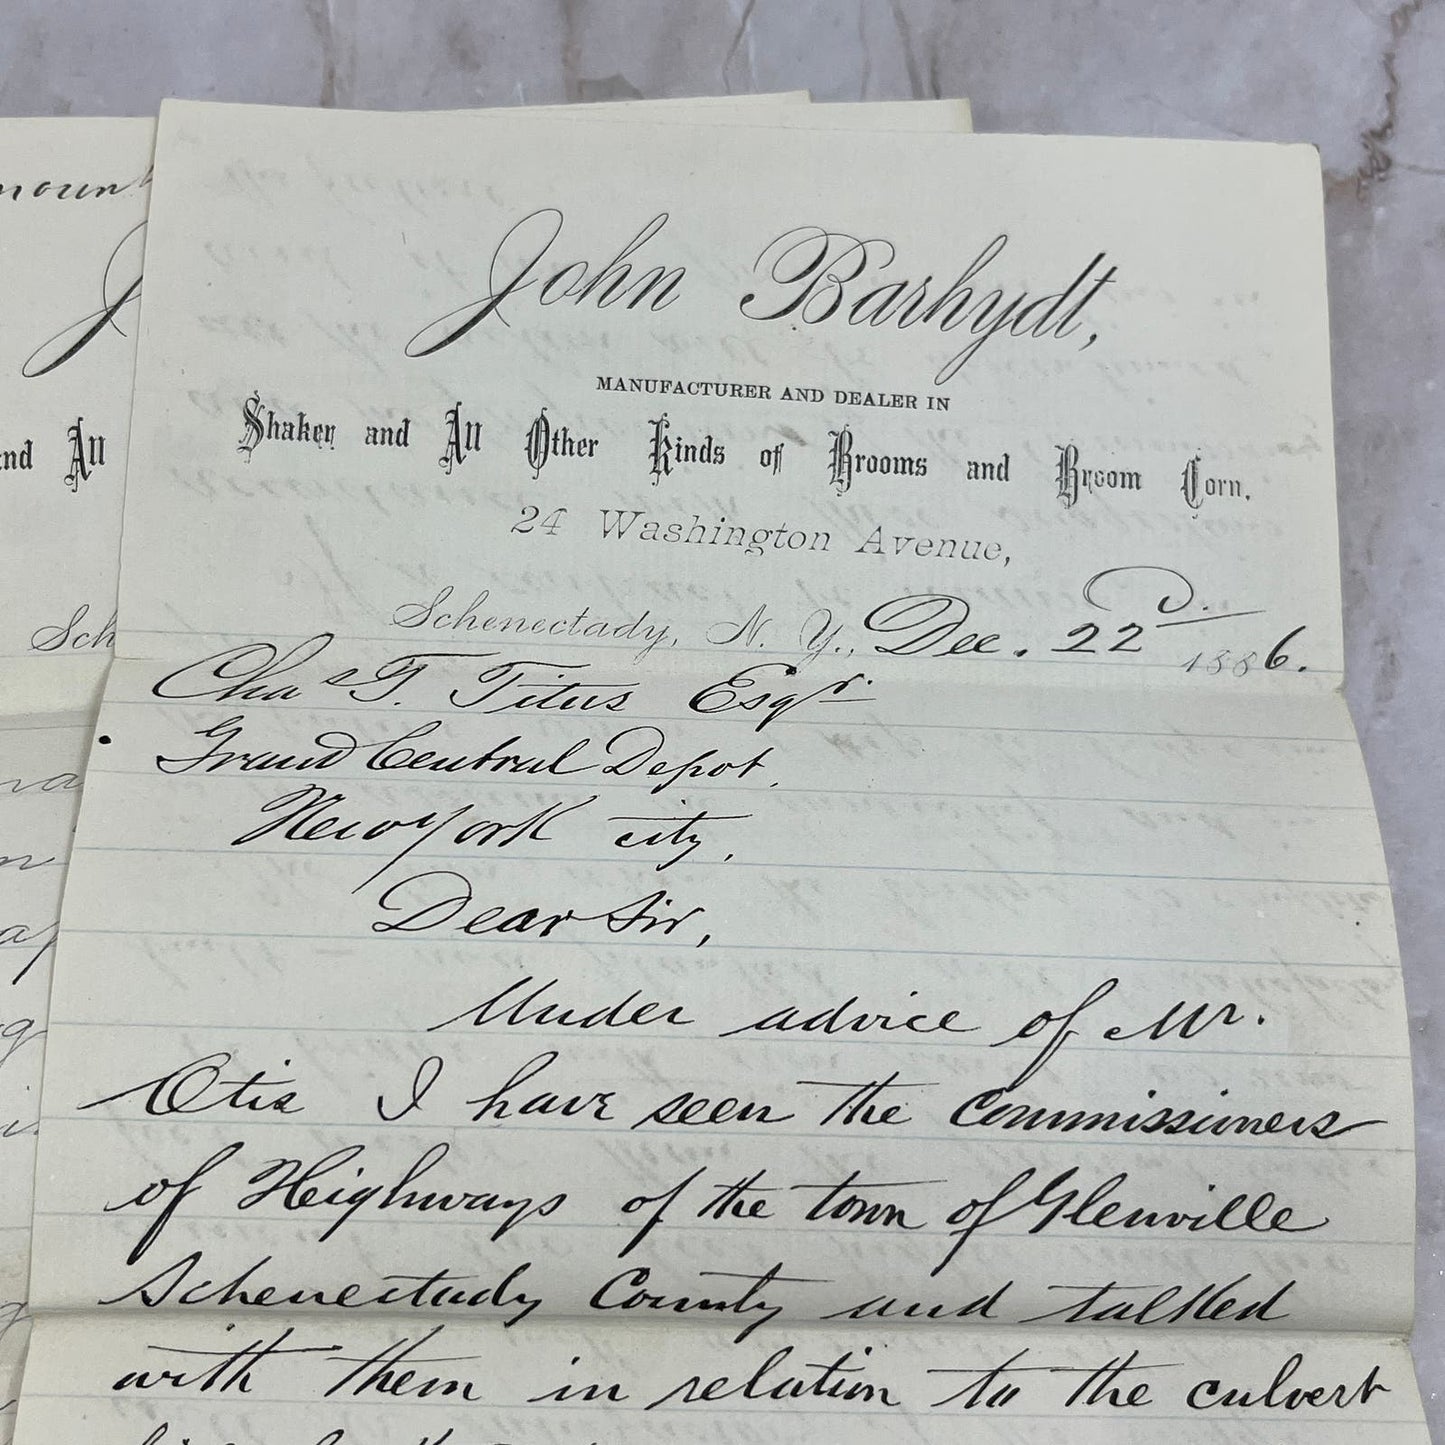 John Barhydt,
MANUFACTURER AND DEALER IN
Shaker and All Other Kinds of Brooms and Broom Corn.
24 Washington Avenue,
Schenectady, N. Y., Dec. 22d. 1886.
Chas T. Titus Esqr.
Grand Central Depot,
New York city,
Dear Sir,
Under advice of Mr.
Otis I have seen the Commissioners
of Highways of the town of Glenville
Schenectady County and talked
with them in relation to the culvert
nd All
Sch